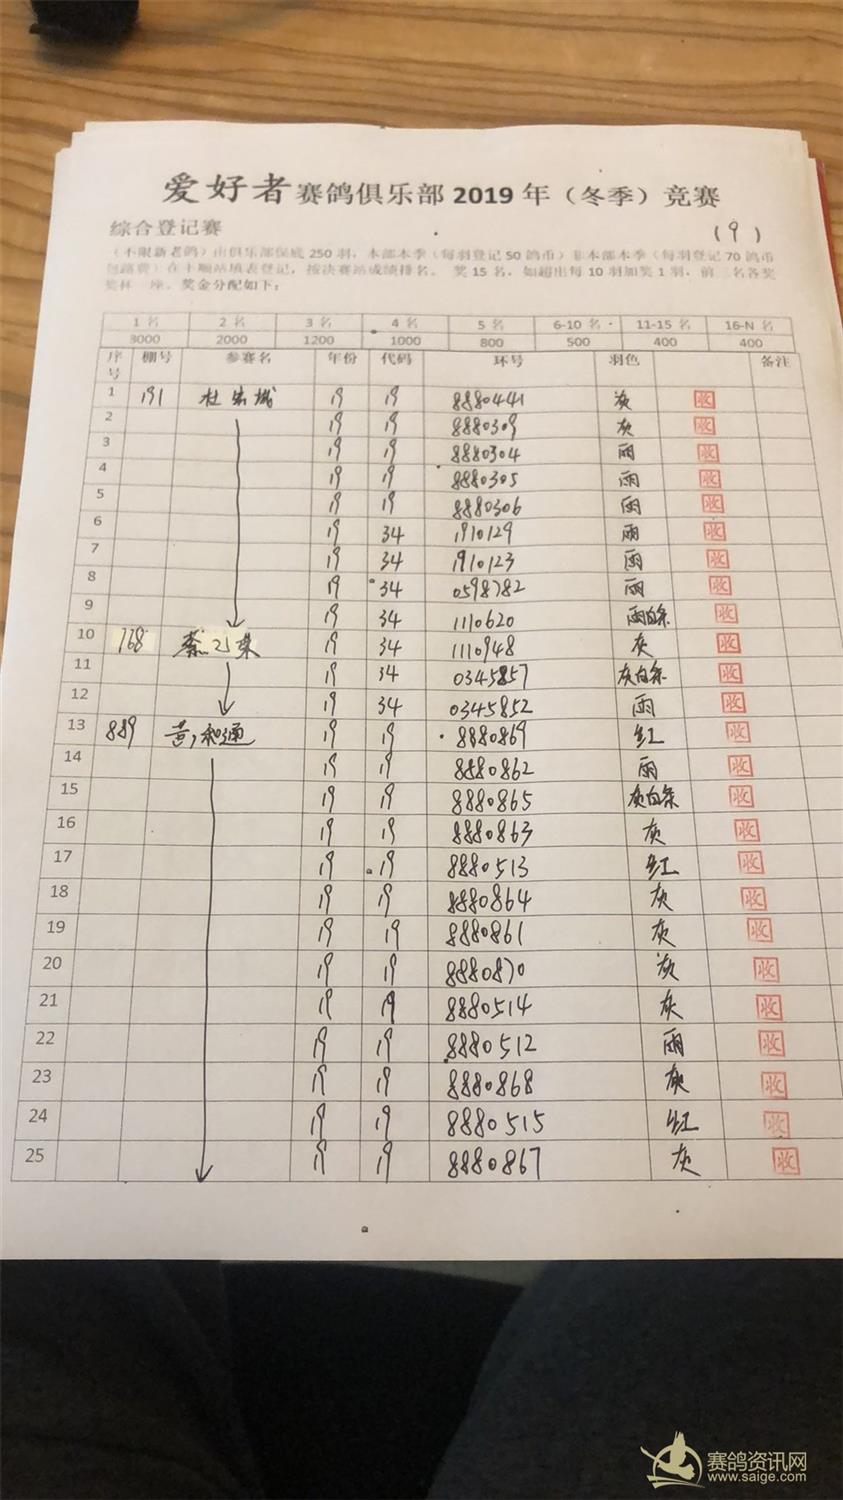 爱好者赛鸽俱乐部2019年（冬季）竞赛
综合登记赛 (9)
（不限新老鸽）由俱乐部保底250羽，本部本季（每羽登记50鸽币）非本部本季（每羽登记70鸽币
包路费）在十顺站填表登记，按决赛站成绩排名。 奖15名，如超出每10羽加奖1羽，前三名各奖
奖杯一座。奖金分配如下：
1名 2名 3名 4名 5名 6-10名 11-15名 16-N名
3000 2000 1200 1000 800 500 400 400
序号 棚号 参赛名 年份 代码 环号 羽色 备注
1 191 杜宏城 19 19 8880441 灰 收
2 19 19 8880309 灰 收
3 19 19 8880304 雨 收
4 19 19 8880305 雨 收
5 19 19 8880306 雨 收
6 19 34 1910129 雨 收
7 19 34 1910123 雨 收
8 19 34 0598782 雨 收
9 19 34 1110620 雨白条 收
10 168 19 34 1110948 灰 收
11 19 34 0345857 灰白条 收
12 19 34 0345852 雨 收
13 889 黄和通 19 19 8880869 红 收
14 19 19 8880862 雨 收
15 19 19 8880865 灰白条 收
16 19 19 8880863 灰 收
17 19 19 8880513 红 收
18 19 19 8880864 灰 收
19 19 19 8880861 灰 收
20 19 19 8880870 灰 收
21 19 19 8880514 灰 收
22 19 19 8880512 雨 收
23 19 19 8880868 灰 收
24 19 19 8880515 红 收
25 19 19 8880867 灰 收
赛鸽资讯网
www.saige.com